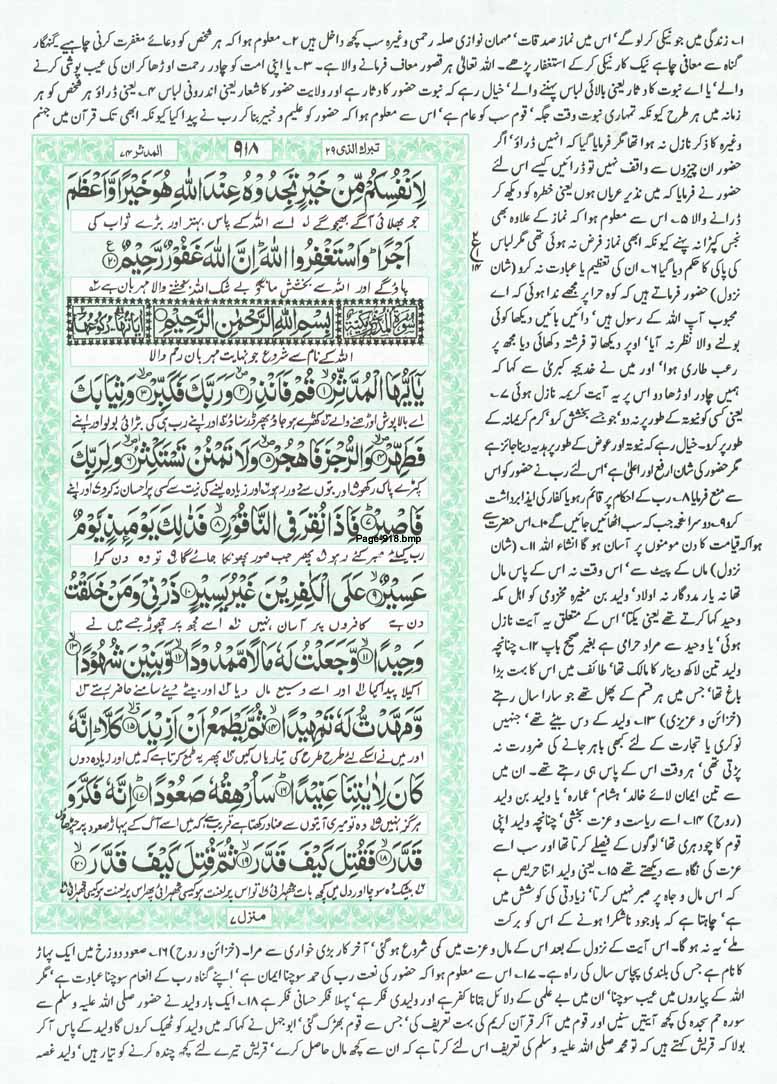 ۱۔ زندگی میں جو نیکی کر لو گے، اس میں نماز صدقات، مہمان نوازی صلہ رحمی وغیرہ سب کچھ داخل ہیں ۲۔ معلوم ہوا کہ ہر شخص کو دعائے مغفرت کرنی چاہیے گنہگار
گناہ سے معافی چاہے نیک کار نیکی کر کے استغفار پڑھے۔ اللہ تعالٰی ہر قصور معاف فرمانے والا ہے۔ ۳۔ یا اپنی امت کو چادر رحمت اوڑھا کر ان کی عیب پوشی کرنے
والے، یا اے نبوت کا دثار یعنی بالائی لباس پہننے والے، خیال رہے کہ نبوت حضور کا دثار ہے اور ولایت حضور کا شعار یعنی اندرونی لباس ۴۔ یعنی ڈراؤ ہر شخص کو ہر
زمانہ میں ہر طرح کیونکہ تمہاری نبوت وقت جگہ، قوم سب کو عام ہے، اس سے معلوم ہوا کہ حضور کو علیم و خبیر بنا کر رب نے پیدا کیا کیونکہ ابھی تک قرآن میں جنم
تبرک الذی ۲۹
۹۱۸
المدثر ۷۴
لِاَنْفُسِكُمْ مِّنْ خَيْرٍ تَجِدُوْهُ عِنْدَ اللّٰهِ هُوَ خَيْرًا وَّاَعْظَمَ
جو بھلائی آگے بھیجو گے اسے اللہ کے پاس بہتر اور بڑے ثواب کی
اَجْرًا وَاسْتَغْفِرُوا اللّٰهَ اِنَّ اللّٰهَ غَفُوْرٌ رَّحِيْمٌ ۲۰
پاؤ گے اور اللہ سے بخشش مانگو بے شک اللہ بخشنے والا مہربان ہے
بِسْمِ اللّٰهِ الرَّحْمٰنِ الرَّحِيْمِ
اللہ کے نام سے شروع جو نہایت مہربان رحم والا
يٰۤاَيُّهَا الْمُدَّثِّرُ ۱ قُمْ فَاَنْذِرْ ۲ وَرَبَّكَ فَكَبِّرْ ۳ وَثِيَابَكَ
اے بالا پوش اوڑھنے والے کھڑے ہو جاؤ پھر ڈر سناؤ اور اپنے رب ہی کی بڑائی بولو اور اپنے
فَطَهِّرْ ۴ وَالرُّجْزَ فَاهْجُرْ ۵ وَلَا تَمْنُنْ تَسْتَكْثِرُ ۶ وَلِرَبِّكَ
کپڑے پاک رکھو اور بتوں سے دور رہو اور زیادہ لینے کی نیت سے کسی پر احسان نہ کرو اور اپنے
فَاصْبِرْ ۷ فَاِذَا نُقِرَ فِي النَّاقُوْرِ ۸ فَذٰلِكَ يَوْمَئِذٍ يَّوْمٌ
Page-918.bmp
رب کیلئے صبر کئے رہو پھر جب صور پھونکا جائے گا تو وہ دن کڑا
عَسِيْرٌ ۹ عَلَى الْكٰفِرِيْنَ غَيْرُ يَسِيْرٍ ۱۰ ذَرْنِيْ وَمَنْ خَلَقْتُ
دن ہے کافروں پر آسان نہیں اسے مجھ پر چھوڑ جسے میں نے
وَحِيْدًا ۱۱ وَّجَعَلْتُ لَهٗ مَالًا مَّمْدُوْدًا ۱۲ وَّبَنِيْنَ شُهُوْدًا ۱۳
اکیلا پیدا کیا اور اسے وسیع مال دیا اور بیٹے دیئے سامنے حاضر رہتے
وَّمَهَّدْتُّ لَهٗ تَمْهِيْدًا ۱۴ ثُمَّ يَطْمَعُ اَنْ اَزِيْدَ ۱۵ كَلَّا اِنَّهٗ
اور میں نے اسکے لئے طرح طرح کی تیاریاں کیں پھر یہ طمع کرتا ہے کہ میں اور زیادہ دوں
كَانَ لِاٰيٰتِنَا عَنِيْدًا ۱۶ سَاُرْهِقُهٗ صَعُوْدًا ۱۷ اِنَّهٗ فَكَّرَ وَ
ہرگز نہیں وہ تو میری آیتوں سے عناد رکھتا ہے قریب ہے کہ میں اسے آگ کے پہاڑ صعود پر چڑھاؤں
قَدَّرَ ۱۸ فَقُتِلَ كَيْفَ قَدَّرَ ۱۹ ثُمَّ قُتِلَ كَيْفَ قَدَّرَ ۲۰
بیشک وہ سوچا اور دل میں کچھ بات ٹھہرائی تو اس پر لعنت ہو کیسی ٹھہرائی پھر اس پر لعنت ہو کیسی ٹھہرائی
منزل ۷
وغیرہ کا ذکر نازل نہ ہوا تھا مگر فرمایا گیا کہ انہیں ڈراؤ، اگر
حضور ان چیزوں سے واقف نہیں تو ڈرائیں کیسے اس لئے
حضور نے فرمایا کہ میں نذیر عریاں ہوں یعنی خطرہ کو دیکھ کر
ڈرانے والا ۵۔ اس سے معلوم ہوا کہ نماز کے علاوہ بھی
نجس کپڑا نہ پہنے کیونکہ ابھی نماز فرض نہ ہوئی تھی مگر لباس
کی پاکی کا حکم دیا گیا ۶۔ ان کی تعظیم یا عبادت نہ کرو (شان
نزول) حضور فرماتے ہیں کہ کوہ حرا پر مجھے ندا ہوئی کہ اے
محبوب آپ اللہ کے رسول ہیں، دائیں بائیں دیکھا کوئی
بولنے والا نظر نہ آیا، اوپر دیکھا تو فرشتہ دکھائی دیا مجھ پر
رعب طاری ہوا، اور میں نے خدیجہ کبریٰ سے کہا کہ
ہمیں چادر اوڑھا دو اس پر یہ آیت کریمہ نازل ہوئی ۷۔
یعنی کسی کو نیوتہ کے طور پر نہ دو، جو جسے بخشش کرو، کرم کریمانہ کے
طور پر کرو۔ خیال رہے کہ نیوتہ اور عوض کے طور پر ہدیہ دینا جائز ہے
مگر حضور کی شان ارفع اور اعلیٰ ہے، اس لئے رب نے حضور کو اس
سے منع فرمایا ۸۔ رب کے احکام پر قائم رہو یا کفار کی ایذا برداشت
کرو ۹۔ دوسرا نفخہ جب کہ سب اٹھائیں جائیں گے ۱۰۔ اس حضرت سے
ہوا کہ قیامت کا دن مومنوں پر آسان ہو گا انشاء اللہ ۱۱۔ (شان
نزول) ماں کے پیٹ سے، اس وقت نہ اس کے پاس مال
تھا نہ یار مددگار نہ اولاد، ولید بن مغیرہ مخزومی کو اہل مکہ
وحید کہا کرتے تھے یعنی یکتا، اس کے متعلق یہ آیت نازل
ہوئی، یا وحید سے مراد حرامی ہے بغیر صحیح باپ ۱۲۔ چنانچہ
ولید تین لاکھ دینار کا مالک تھا، طائف میں اس کا بہت بڑا
باغ تھا، جس میں ہر قسم کے پھل تھے جو سارا سال رہتے
(خزائن و عزیزی) ۱۳۔ ولید کے دس بیٹے تھے، جنہیں
نوکری یا تجارت کے لئے کبھی باہر جانے کی ضرورت نہ
پڑتی تھی، ہر وقت اس کے پاس ہی رہتے تھے۔ ان میں
سے تین ایمان لائے خالد، ہشام، عمارہ، یا ولید بن ولید
(روح) ۱۴۔ اسے ریاست و عزت بخشی، چنانچہ ولید اپنی
قوم کا چودہری تھا، لوگوں کے فیصلے کرتا تھا اور سب اسے
عزت کی نگاہ سے دیکھتے تھے ۱۵۔ یعنی ولید اتنا حریص ہے
کہ اس مال و جاہ پر صبر نہیں کرتا، زیادتی کی کوشش میں
ہے، چاہتا ہے کہ باوجود ناشکرا ہونے کے اس کو برکت
ملے، یہ نہ ہو گا۔ اس آیت کے نزول کے بعد اس کے مال و عزت میں کمی شروع ہو گئی، آخر کار بڑی خواری سے مرا۔ (خزائن و روح) ۱۶۔ صعود دوزخ میں ایک پہاڑ
کا نام ہے جس کی بلندی پچاس سال کی راہ ہے۔ ۱۷۔ اس سے معلوم ہوا کہ حضور کی نعت رب کی حمد سوچنا ایمان ہے، اپنے گناہ رب کے انعام سوچنا عبادت ہے، مگر
اللہ کے پیاروں میں عیب سوچنا، ان میں بے علمی کے دلائل بتانا کفر ہے اور ولیدی فکر ہے، پہلا فکر حسانی فکر ہے ۱۸۔ ایک بار ولید نے حضور صلی اللہ علیہ وسلم سے
سورہ حم سجدہ کی کچھ آیتیں سنیں اور قوم میں آ کر قرآن کریم کی بہت تعریف کی، جس سے قوم بھڑک گئی، ابوجہل نے کہا کہ میں ولید کو ٹھیک کروں گا ولید کے پاس آ کر
بولا کہ قریش کہتے ہیں کہ تو محمد صلی اللہ علیہ وسلم کی تعریف اس لئے کرتا ہے کہ ان سے کچھ مال حاصل کرے، قریش تیرے لئے کچھ چندہ کرنے کو تیار ہیں، ولید غصہ